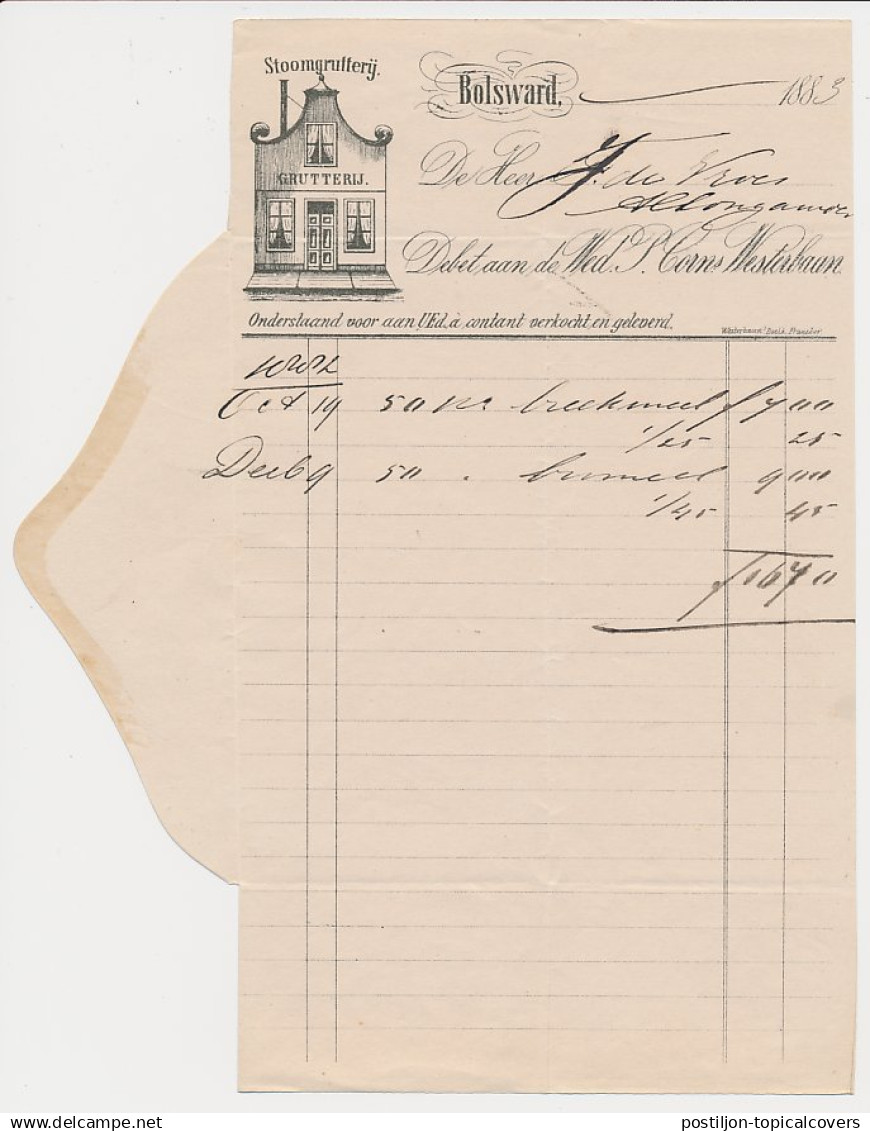 Stoomgrutterij.
GRUTTERIJ.
Bolsward, 1883
De Heer J. de Vries
Debet aan de Wed. P. Corns Westerbaan.
Onderstaand voor aan UEd. à contant verkocht en geleverd.
1882
Oct 19 50 boekmeel f 7 00
1/25 25
Decb 9 50 9 00
1/45 45
f 16 70
postiljon-topicalcovers